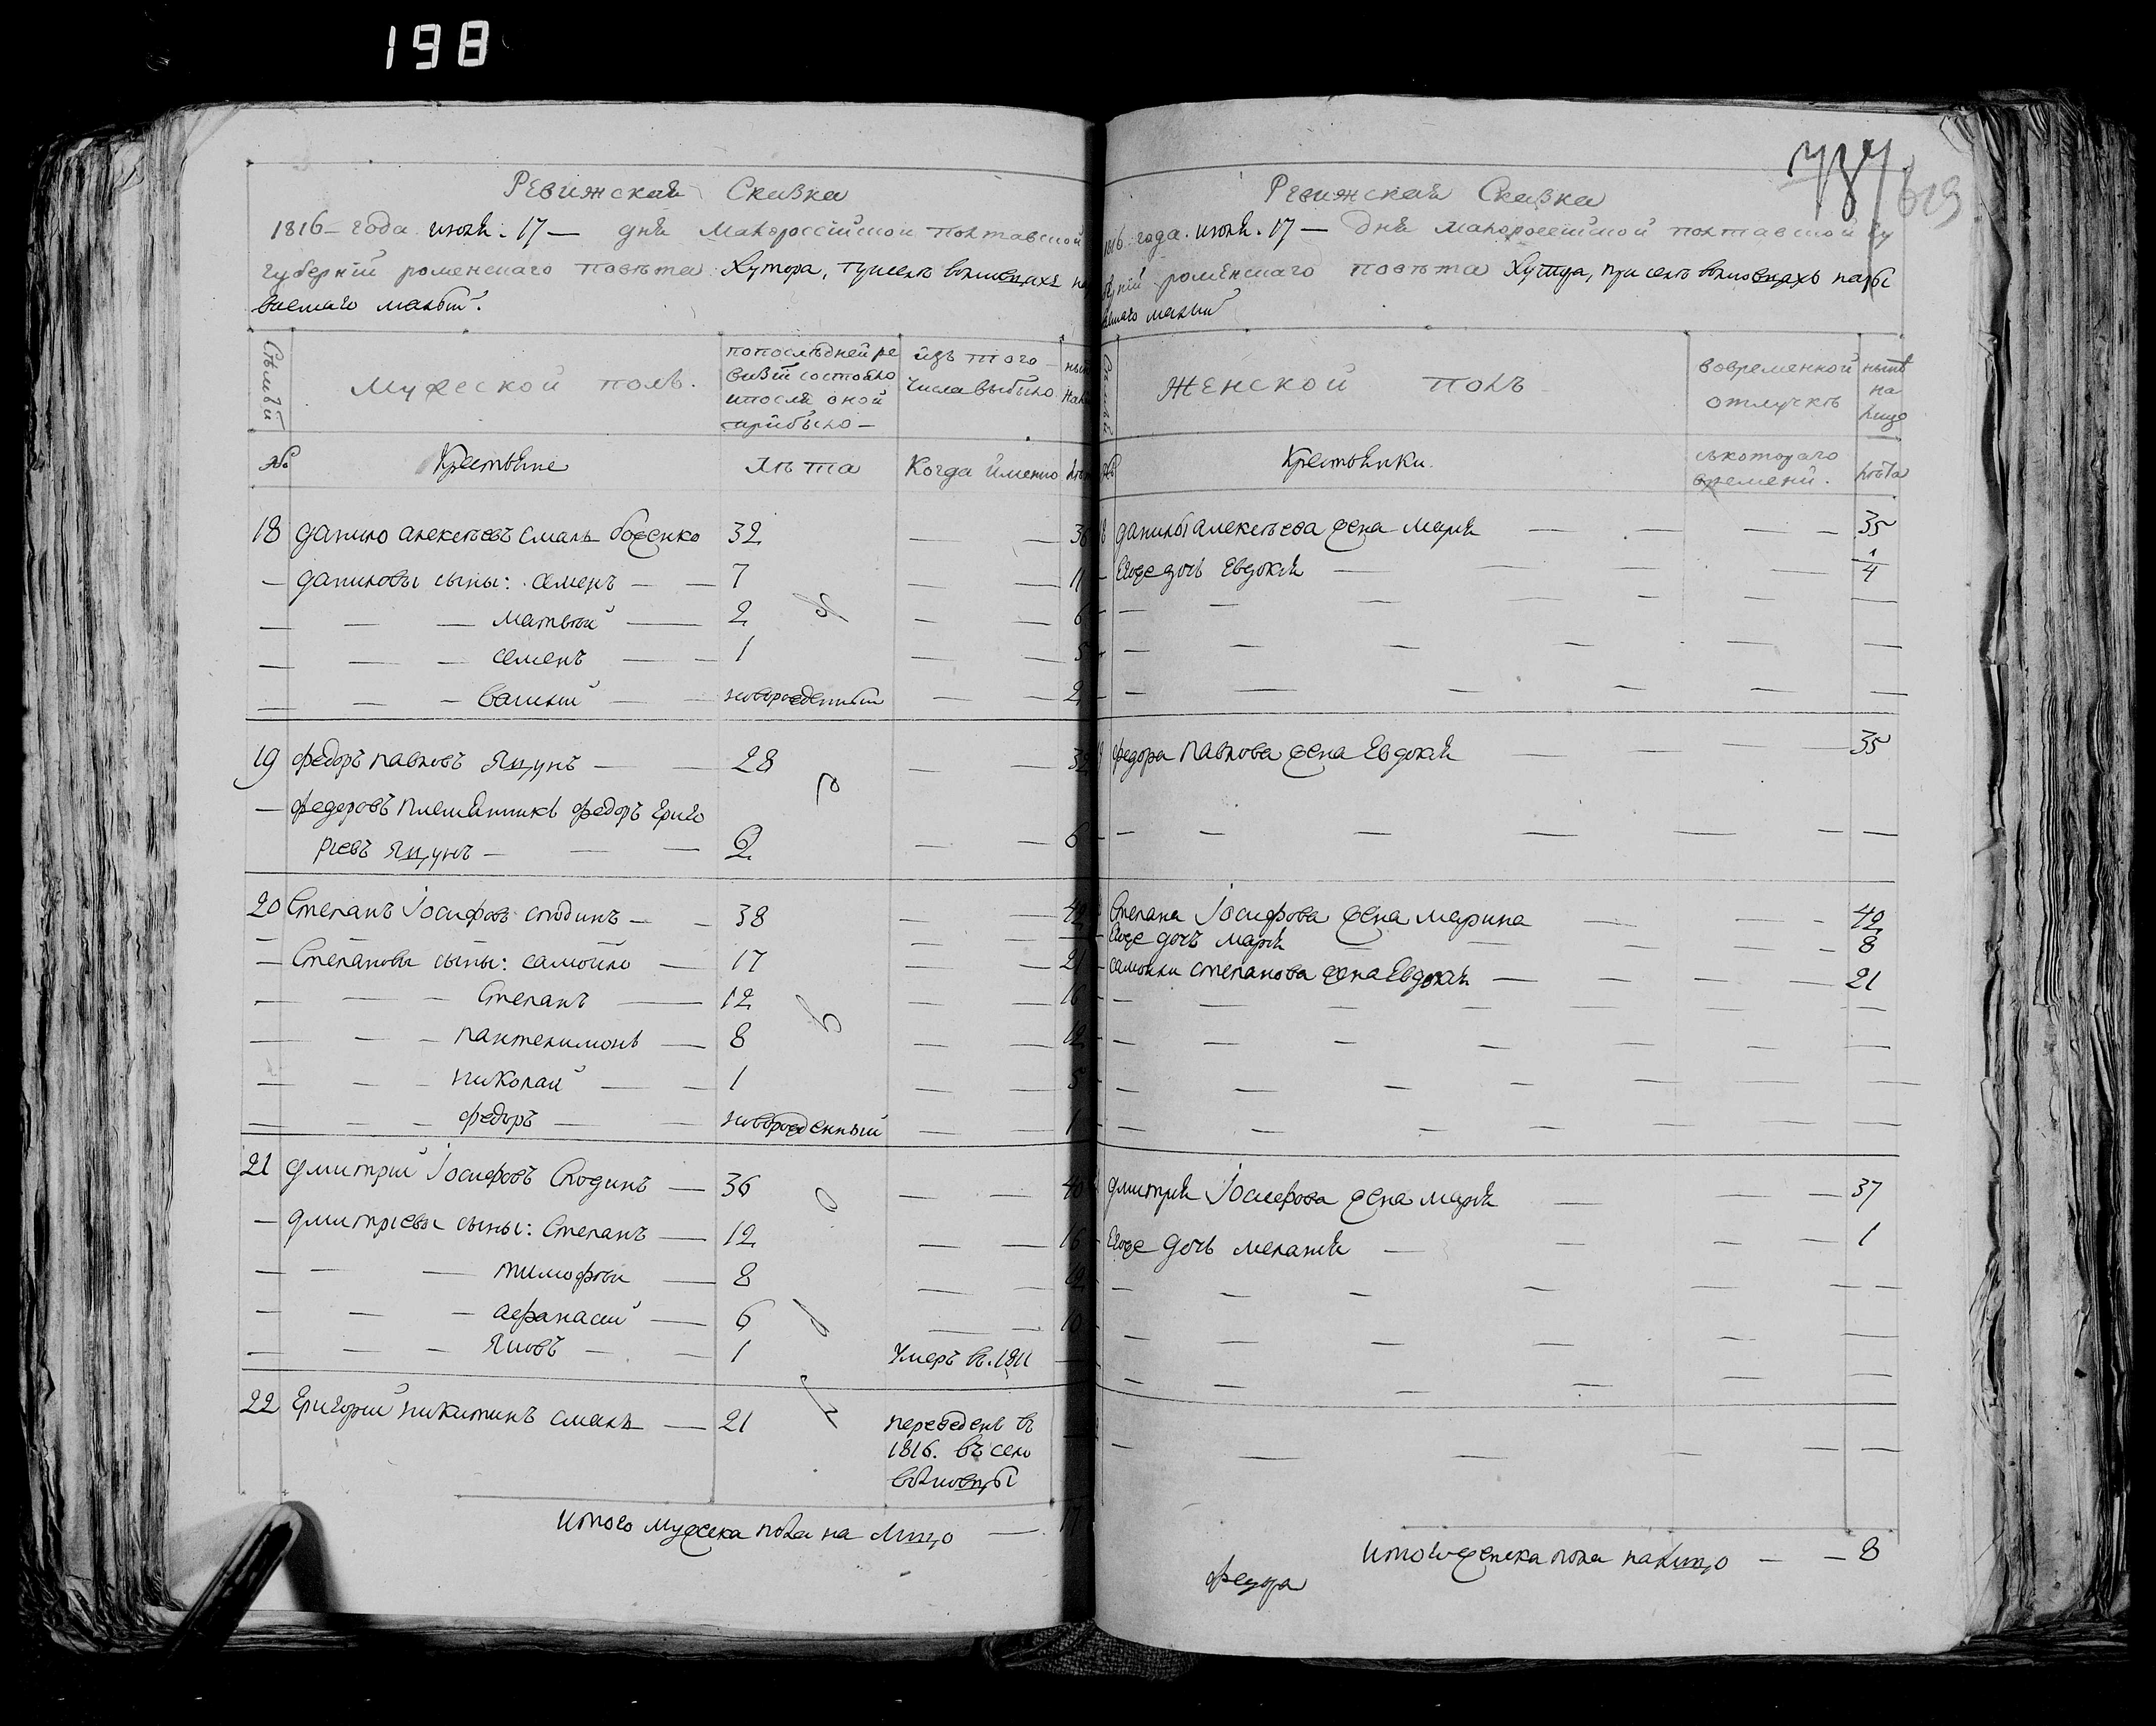 198
Ревижская Сказка
1816 года июля 17 — дня малороссійской полтавской
губерніи роменскаго повѣта Хутора, при селѣ волковцахъ на
ваемаго малый.
Сѣмьи
Мужеской полъ.
попослѣдней ре
визіи состояло
ипосля оной
прибыло —
изъ того
числа выбыло
нынѣ
№
Крестьяне
лѣта
Когда именно
18 данило алексѣевъ смаль боженко 32 — — 36
— даниловы сыны: семенъ — — 7 — — 11
— — — матвѣй — 2 — — 6
— — — семенъ — — 1 — — 5
— — — василий — — новорожденный — — 2
19 федоръ павловъ Яцунъ — — 28 — — 32
— федоровъ племянникъ федоръ григо
рьевъ Яцунъ — — — 2 — — 6
20 Степанъ іосифовъ сподинъ — — 38 — — 42
— Степановы сыны: самойло — 17 — — 21
— — — Степанъ — 12 — — 16
— — — пантелимонъ — 8 — — 12
— — — николай — — 1 — — 5
— — — федоръ — — новорожденный — — 1
21 дмитрий іосифовъ Сподинъ — 36 — — 40
— дмитріевы сыны: Степанъ — 12 — — 16
— — — тимофѣй — 8 — — 12
— — — афанасий — 6 — — 10
— — — Яковъ — — 1 Умеръ въ 1811 —
22 григорий никитинъ смаль — 21 переведенъ въ
1816. въ село
волковцы
Итого мужеска пола на лицо — 17
737
613
Ревижская Сказка
1816 года июля 17 — дня малороссійской полтавской гу
берніи роменскаго повѣта Хутора, при селѣ волковцахъ назы
ваемаго малый
Женской полъ
вовременной
отлучкѣ
нынѣ
на
лицо
№
Крестьянки.
скотораго
времени.
лѣта
18 данилы алексѣева жена мария — — — — 35
Егоже дочь Евдокия — — — — 4
19 федора павлова жена Евдокия — — — 35
Степана іосифова жена марина — — — 42
Егоже дочь мария — — — — 8
самойлы степанова жена Евдокия — — — — 21
дмитрия іосифова жена мария — — 37
Егоже дочь мелания — — — — 1
итого женска пола налицо — — 8
федора